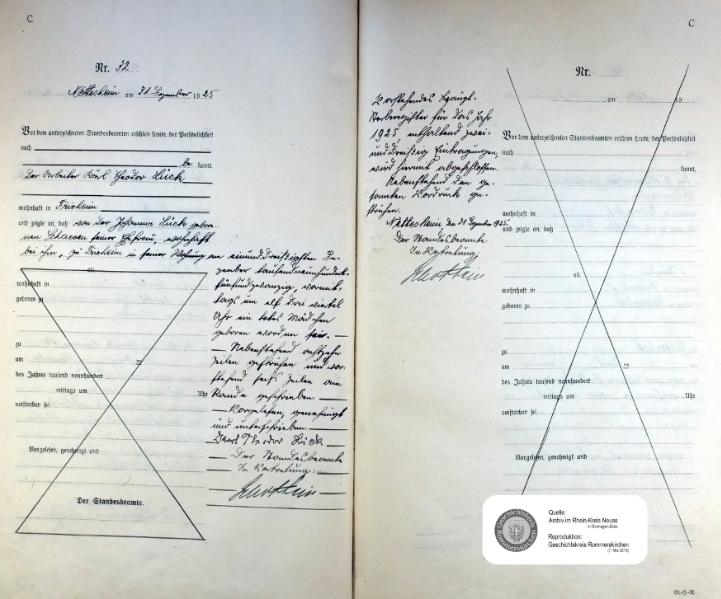 C
Nr. 32
Nettesheim am 31. Dezember 1925
Vor dem unterzeichneten Standesbeamten erschien heute, der Persönlichkeit
nach
be kannt,
der Arbeiter Karl Theodor Lück
wohnhaft in Frixheim
und zeigte an, daß von der Johanna Lück gebore-
nen seiner Ehefrau, wohnhaft
bei ihm, zu Frixheim in seiner Wohnung am einunddreißigsten De-
zember tausendneunhundert-
fünfundzwanzig, vormit-
tags um elf drei viertel
Uhr ein totes Mädchen
geboren worden sei.
Nebenstehend achtzehn
Zeilen gestrichen und vor-
stehend sechs Zeilen am
Rande geschrieben.
Vorgelesen, genehmigt
und unterschrieben.
Karl Theodor Lück
Der Standesbeamte
In Vertretung:
alt,
wohnhaft in
geboren zu
zu
am ten
des Jahres tausend neunhundert
mittags um Uhr
verstorben sei
Vorgelesen, genehmigt und
Der Standesbeamte.
C
Nr.
am 19
Vor dem unterzeichneten Standesbeamten erschien heute, der Persönlichkeit
nach
kannt,
wohnhaft in
und zeigte an, daß
alt,
wohnhaft in
geboren zu
zu
am ten
des Jahres tausend neunhundert
mittags um Uhr
verstorben sei
Vorgelesen, genehmigt und
Vorstehendes Haupt-
Sterberegister für das Jahr
1925, enthaltend zwei-
unddreißig Eintragungen,
wird hiermit abgeschlossen.
Nebenstehend den ge-
samten Vordruck ge-
strichen.
Nettesheim, den 31. Dezember 1925.
Der Standesbeamte.
In Vertretung:
Quelle:
Archiv im Rhein-Kreis Neuss
in Dormagen-Zons
Reproduktion:
Geschichtskreis Rommerskirchen
(7. Mai 2013)